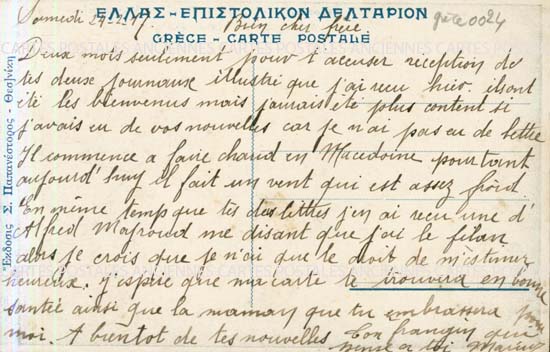 Samedi 24-2-17. Bien cher frère
ΕΛΛΑΣ-ΕΠΙΣΤΟΛΙΚΟΝ ΔΕΛΤΑΡΙΟΝ
gréce0024
GRÈCE - CARTE POSTALE
Deux mois seulement pour t accuser reception de
tes deux journaux illustré que j'ai recu hier. ils ont
été les bienvenus mais jaurais été plus content si
j'avais eu de vos nouvelles car je n'ai pas eu de lettre
Il commence a faire chaud en Macedoine pourtant
aujourd'huy il fait un vent qui est assez froid
En même temp que tes lettres j'en ai recu une d'
Alfred me disant que j'ai le filon
alors je crois que je n'ai que le droit de m'estimer
heureux. j'espère que ma carte te trouvera en bonne
santé ainsi que la maman que tu embrassera pour
moi. A bientot de tes nouvelles Ton frangin qui
pense a toi
Ἔκδοσις Σ. Παπανέστορος - Θεσ)νίκη
CARTES POSTALES ANCIENNES CARTES POSTALES ANCIENNES